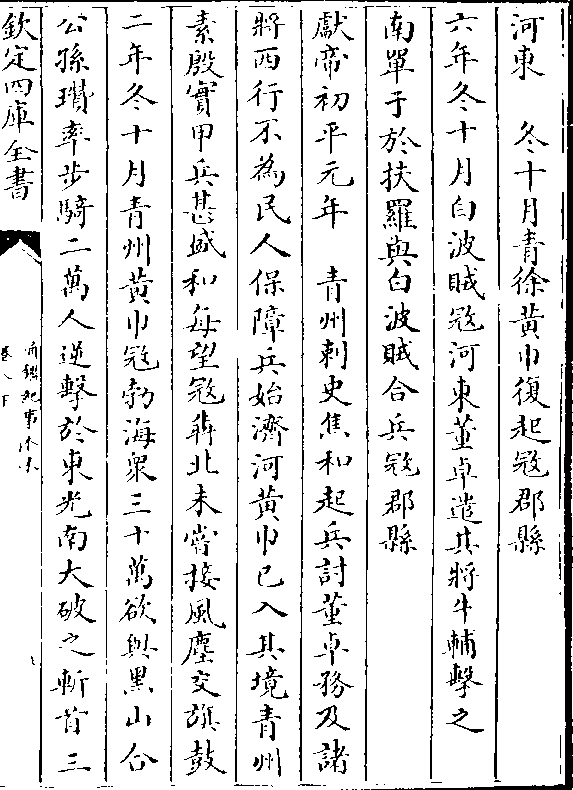 河東　冬十月青徐黄巾復起冦郡縣
六年冬十月白波賊冦河東董卓遣其將牛輔擊之
南單于於扶羅與白波賊合兵冦郡縣
獻帝初平元年　青州刺史焦和起兵討董卓務及諸
將西行不為民人保障兵始濟河黄巾已入其境青州
素殷實甲兵甚盛和每望冦犇北未嘗接風塵交旗鼓
二年冬十月青州黄巾冦勃海衆三十萬欲與黒山合
公孫瓚率步騎二萬人逆擊於東光南大破之斬首三
欽定四庫全書
通鑑紀事本末
卷八下